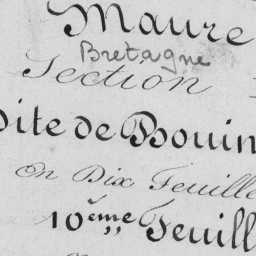 Maure
Bretagne
Section
Dite de Bouin
En Dix Feuille
10ème Feuill